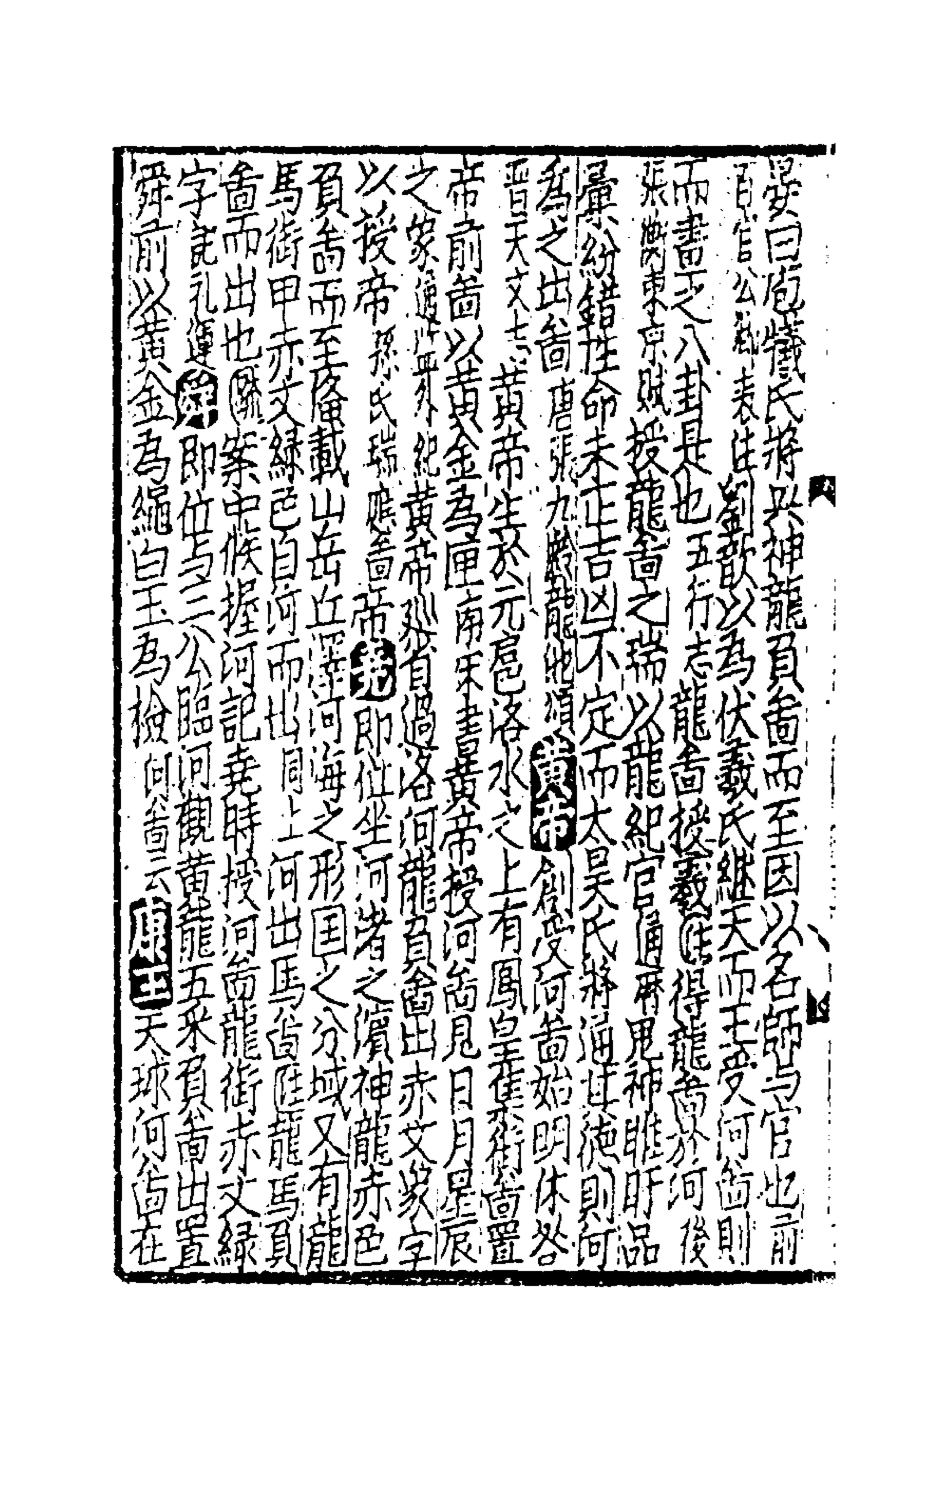 晏曰庖犧氏將兴神龍負啚而至因以名師与官也前
百官公卿表注劉歆以為伏羲氏継天而王受河啚則
而畫之八卦是也五行志龍啚授羲注得龍啚於河後
張衡東京賦授龍啚之瑞以龍紀官通暦甩神睢盱品
彙紛錯性命未正吉凶不定而太昊氏將通其徳則河
為之出啚唐張九齡龍池頌黄帝創受河啚始明休咎
晋天文志黄帝坐於元扈洛水之上有鳳皇集銜啚置
帝前啚以黄金為匣南宋書黄帝授河啚見日月星辰
之象通外紀黄帝廵省過洛河龍負啚出赤文象字
以授帝孫氏瑞應啚帝堯即位坐河渚之濵神龍赤色
負啚而至俻載山岳丘澤河海之形国之分域又有龍
馬銜甲赤文緑色自河而出同上河出馬啚注龍馬負
啚而出也䟽案中候握河記堯時授河啚龍銜赤文緑
字記孔運舜即位与三公臨河觀黄龍五采負啚出置
舜前以黄金為繩白玉為檢河啚云康王天球河啚在